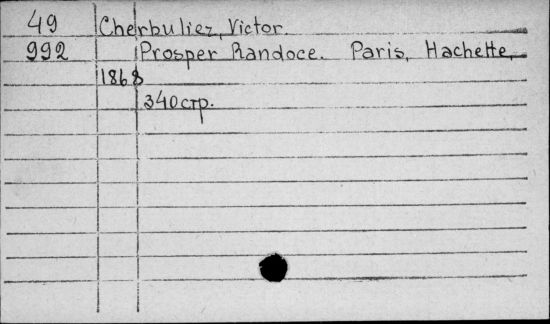 49 Cherbuliez, Victor.
992 Prosper Randoce. Paris, Hachette,
1868
340 стр.